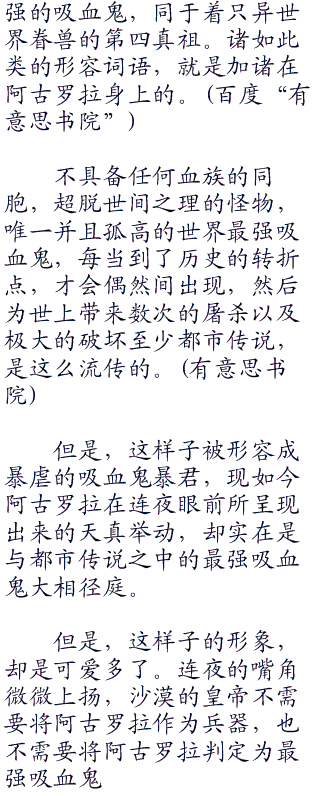 强的吸血鬼，同于着只异世
界眷兽的第四真祖。诸如此
类的形容词语，就是加诸在
阿古罗拉身上的。（百度“有
意思书院”）
不具备任何血族的同
胞，超脱世间之理的怪物，
唯一并且孤高的世界最强吸
血鬼，每当到了历史的转折
点，才会偶然间出现，然后
为世上带来数次的屠杀以及
极大的破坏至少都市传说，
是这么流传的。（有意思书
院）
但是，这样子被形容成
暴虐的吸血鬼暴君，现如今
阿古罗拉在连夜眼前所呈现
出来的天真举动，却实在是
与都市传说之中的最强吸血
鬼大相径庭。
但是，这样子的形象，
却是可爱多了。连夜的嘴角
微微上扬，沙漠的皇帝不需
要将阿古罗拉作为兵器，也
不需要将阿古罗拉判定为最
强吸血鬼